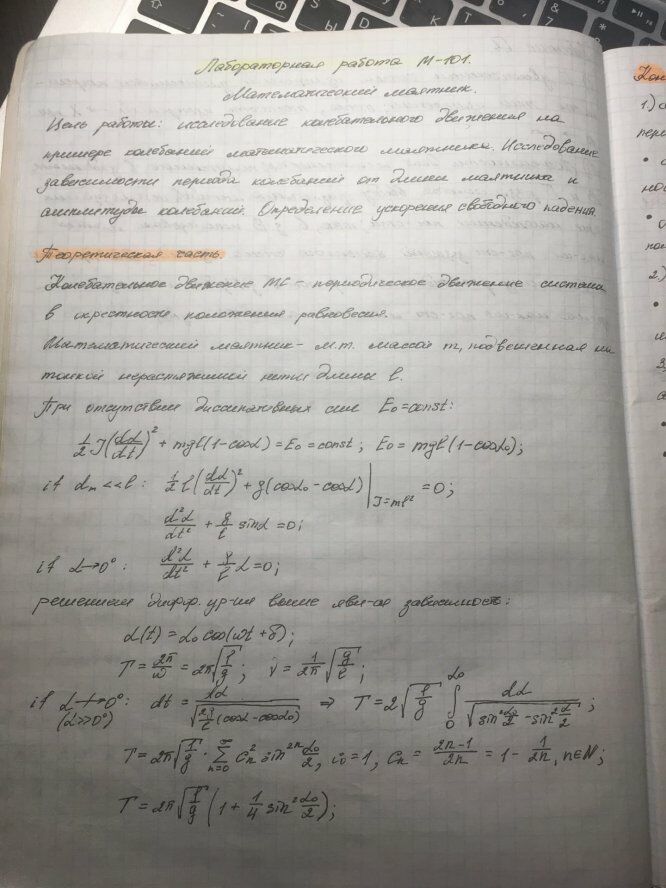 Лабораторная работа М-101.
Математический маятник.
Цель работы: исследование колебательного движения на
примере колебаний математического маятника. Исследование
зависимости периода колебаний от длины маятника и
амплитуды колебаний. Определение ускорения свободного падения.
Теоретическая часть.
Колебательное движение МС - периодическое движение системы
в окрестности положения равновесия.
Математический маятник - м.т. массой m, подвешенная на
тонкой нерастяжимой нити длины l.
При отсутствии диссипативных сил E₀=const:
1/2 J(dα/dt)² + mgl(1-cosα) = E₀ = const; E₀ = mgl(1-cosα₀);
if dm << l: 1/2 l(dα/dt)² + g(cosα₀ - cosα)|J=ml² = 0;
d²α/dt² + g/l sinα = 0;
if α→0°: d²α/dt² + g/l α = 0;
решением дифф. ур-ия выше явл-ся зависимость:
α(t) = α₀ cos(ωt + δ);
T = 2π/ω = 2π√(l/g); ν = 1/2π √(g/l);
if α↛0°: dt = dα/√(2g/l (cosα - cosα₀)) ⇒ T = 2√(l/g) ∫₀^α₀ dα/√(sin² α₀/2 - sin² α/2);
(α>>0°)
T = 2π√(l/g) · Σ n=0 ∞ cn² sin²ⁿ α₀/2, c₀=1, cn = (2n-1)/2n = 1 - 1/2n, n∈N;
T = 2π√(l/g) (1 + 1/4 sin² α₀/2);
1.)
2.)
3.